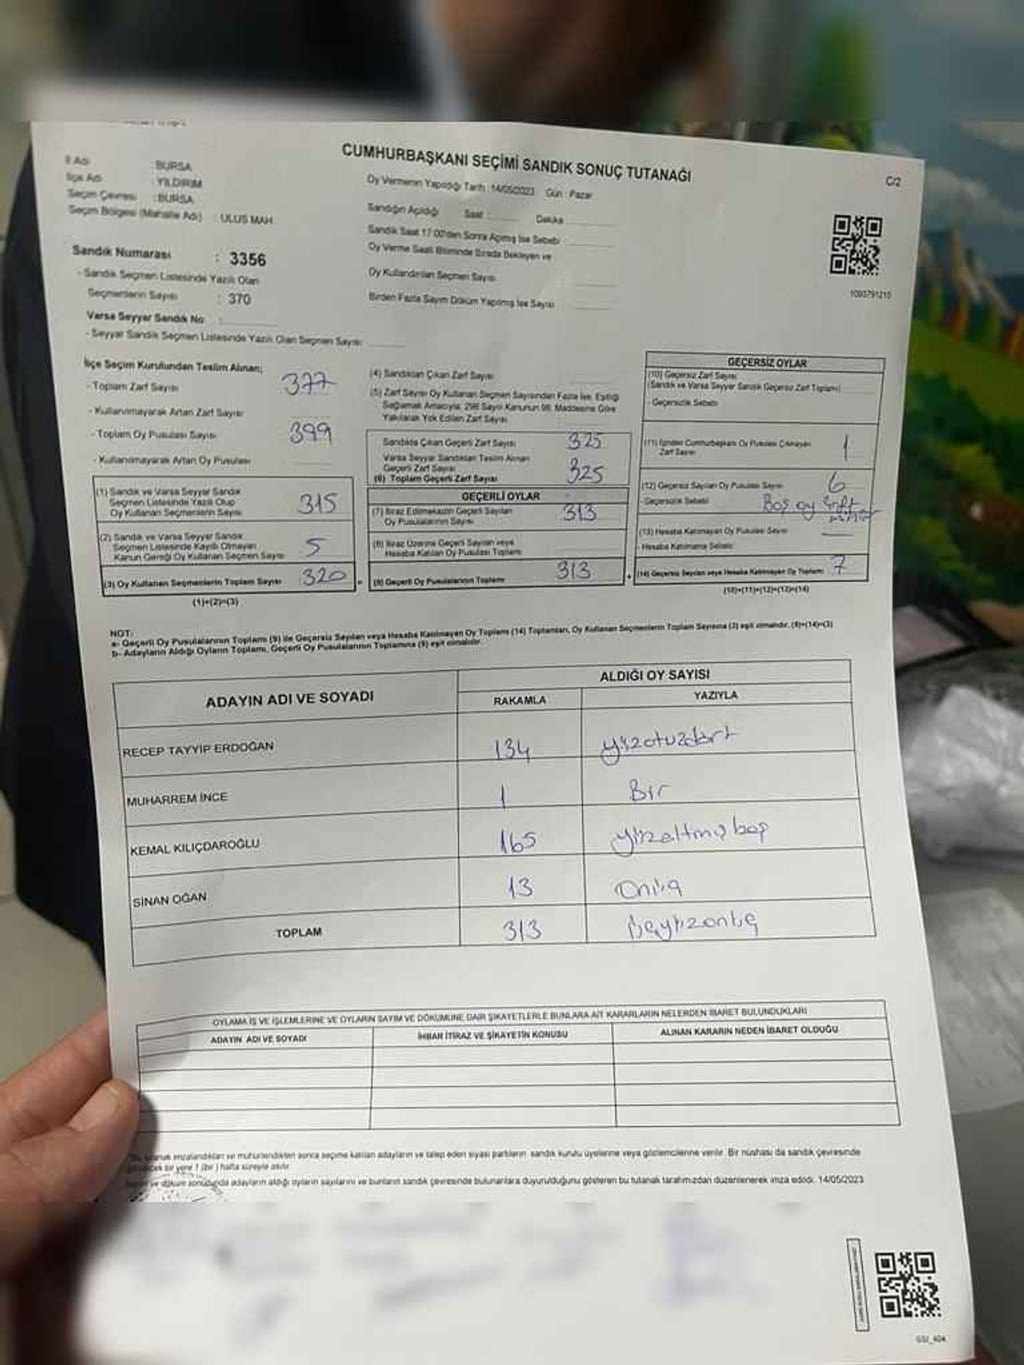 CUMHURBAŞKANI SEÇİMİ SANDIK SONUÇ TUTANAĞI
C/2
İl Adı : BURSA
İlçe Adı : YILDIRIM
Seçim Çevresi : BURSA
Seçim Bölgesi (Mahalle Adı) : ULUS MAH
Sandık Numarası : 3356
- Sandık Seçmen Listesinde Yazılı Olan
Seçmenlerin Sayısı : 370
Varsa Seyyar Sandık No :
- Seyyar Sandık Seçmen Listesinde Yazılı Olan Seçmen Sayısı:
Oy Vermenin Yapıldığı Tarih : 14/05/2023 Gün : Pazar
Sandığın Açıldığı Saat Dakika
Sandık Saat 17:00'den Sonra Açılmış İse Sebebi :
Oy Verme Saati Bitiminde Sırada Bekleyen ve
Oy Kullandırılan Seçmen Sayısı
Birden Fazla Sayım Döküm Yapılmış İse Sayısı :
1093791210
İlçe Seçim Kurulundan Teslim Alınan;
- Toplam Zarf Sayısı 377
- Kullanılmayarak Artan Zarf Sayısı
- Toplam Oy Pusulası Sayısı 399
- Kullanılmayarak Artan Oy Pusulası
(1) Sandık ve Varsa Seyyar Sandık
Seçmen Listesinde Yazılı Olup
Oy Kullanan Seçmenlerin Sayısı 315
(2) Sandık ve Varsa Seyyar Sandık
Seçmen Listesinde Kayıtlı Olmayan
Kanun Gereği Oy Kullanan Seçmen Sayısı 5
(3) Oy Kullanan Seçmenlerin Toplam Sayısı 320
(1)+(2)=(3)
(4) Sandıktan Çıkan Zarf Sayısı
(5) Zarf Sayısı Oy Kullanan Seçmen Sayısından Fazla İse, Eşitliği
Sağlamak Amacıyla; 298 Sayılı Kanunun 98. Maddesine Göre
Yakılarak Yok Edilen Zarf Sayısı
Sandıkta Çıkan Geçerli Zarf Sayısı 325
Varsa Seyyar Sandıktan Teslim Alınan
Geçerli Zarf Sayısı
(6) Toplam Geçerli Zarf Sayısı 325
GEÇERLİ OYLAR
(7) İtiraz Edilmeksizin Geçerli Sayılan
Oy Pusulalarının Sayısı 313
(8) İtiraz Üzerine Geçerli Sayılan veya
Hesaba Katılan Oy Pusulası Toplamı
(9) Geçerli Oy Pusulalarının Toplamı 313
GEÇERSİZ OYLAR
(10) Geçersiz Zarf Sayısı
(Sandık ve Varsa Seyyar Sandık Geçersiz Zarf Toplamı)
- Geçersizlik Sebebi
(11) İçinden Cumhurbaşkanı Oy Pusulası Çıkmayan
Zarf Sayısı 1
(12) Geçersiz Sayılan Oy Pusulası Sayısı 6
- Geçersizlik Sebebi: Boş oy
(13) Hesaba Katılmayan Oy Pusulası Sayısı —
- Hesaba Katılmama Sebebi:
(14) Geçersiz Sayılan veya Hesaba Katılmayan Oy Toplamı 7
(10)+(11)+(12)+(13)=(14)
NOT:
a- Geçerli Oy Pusulalarının Toplamı (9) ile Geçersiz Sayılan veya Hesaba Katılmayan Oy Toplamı (14) Toplamları, Oy Kullanan Seçmenlerin Toplam Sayısına (3) eşit olmalıdır. (9)+(14)=(3)
b- Adayların Aldığı Oyların Toplamı, Geçerli Oy Pusulalarının Toplamına (9) eşit olmalıdır.
ADAYIN ADI VE SOYADI
ALDIĞI OY SAYISI
RAKAMLA YAZIYLA
RECEP TAYYIP ERDOĞAN 134 yüzotuzdört
MUHARREM İNCE 1 Bir
KEMAL KILIÇDAROĞLU 165 yüzaltmışbeş
SİNAN OĞAN 13 Onüç
TOPLAM 313 üçyüzonüç
OYLAMA İŞ VE İŞLEMLERİNE VE OYLARIN SAYIM VE DÖKÜMÜNE DAİR ŞİKAYETLERLE BUNLARA AİT KARARLARIN NELERDEN İBARET BULUNDUKLARI
ADAYIN ADI VE SOYADI İHBAR İTİRAZ VE ŞİKAYETİN KONUSU ALINAN KARARIN NEDEN İBARET OLDUĞU
tutanak imzalandıktan ve mühürlendikten sonra seçime katılan adayların ve talep eden siyasi partilerin sandık kurulu üyelerine veya gözlemcilerine verilir. Bir nüshası da sandık çevresinde
bir yere 1 (bir) hafta süreyle asılır.
ve döküm sonucunda adayların aldığı oyların sayılarını ve bunların sandık çevresinde bulunanlara duyurulduğunu gösteren bu tutanak tarafımızdan düzenlenerek imza edildi. 14/05/2023